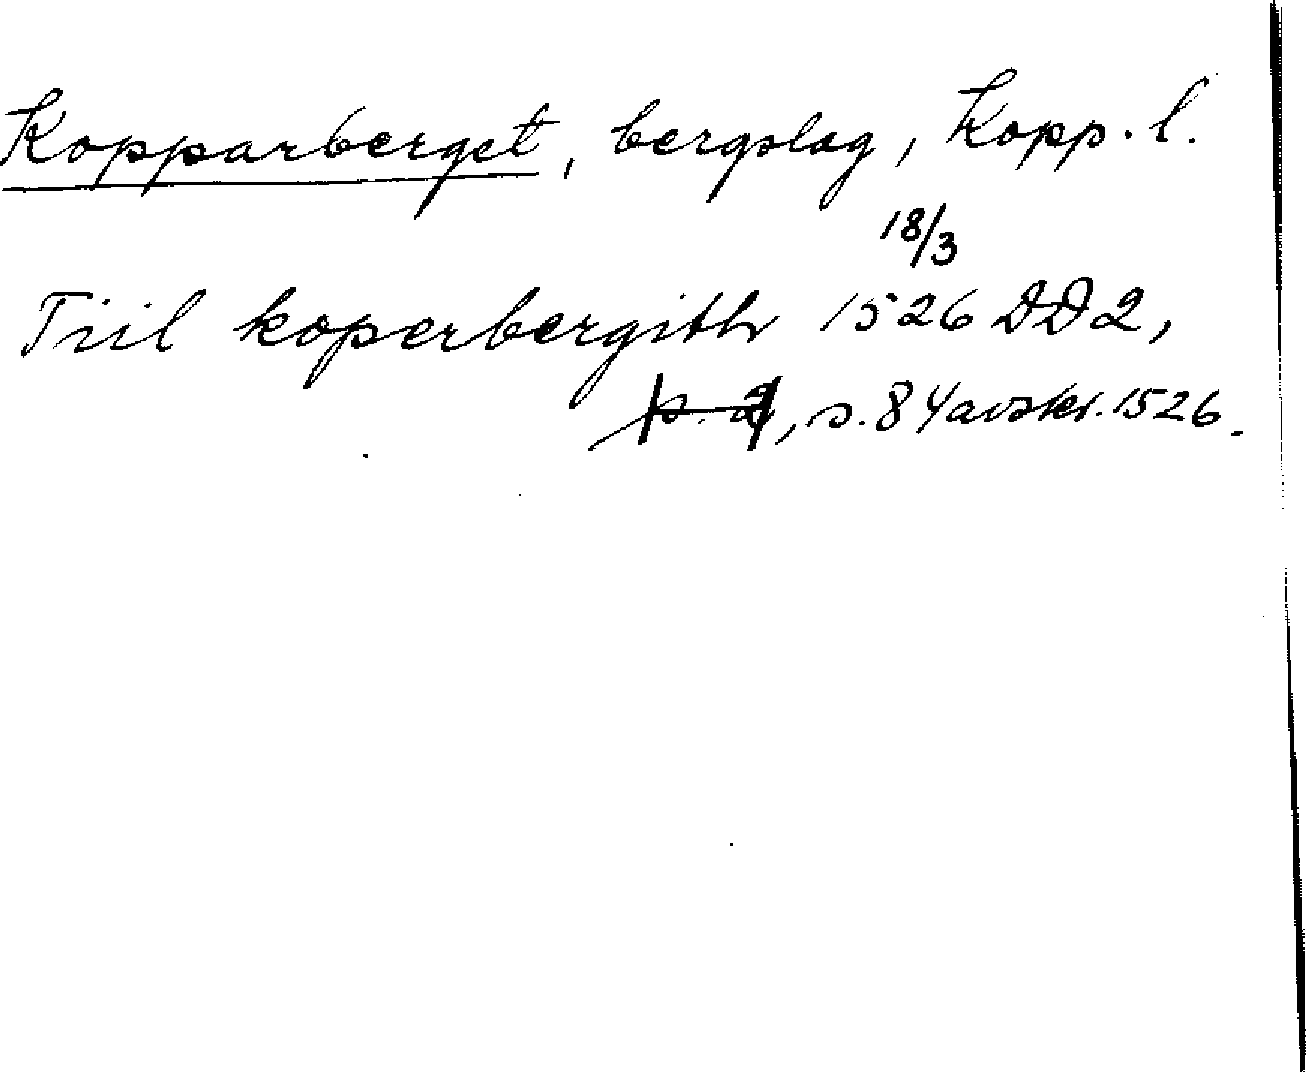 Kopparberget, bergslag, Kopp. l.
18/3
Tiil koperbergith 1526 DD2,
s. 84 avskr. 1526.